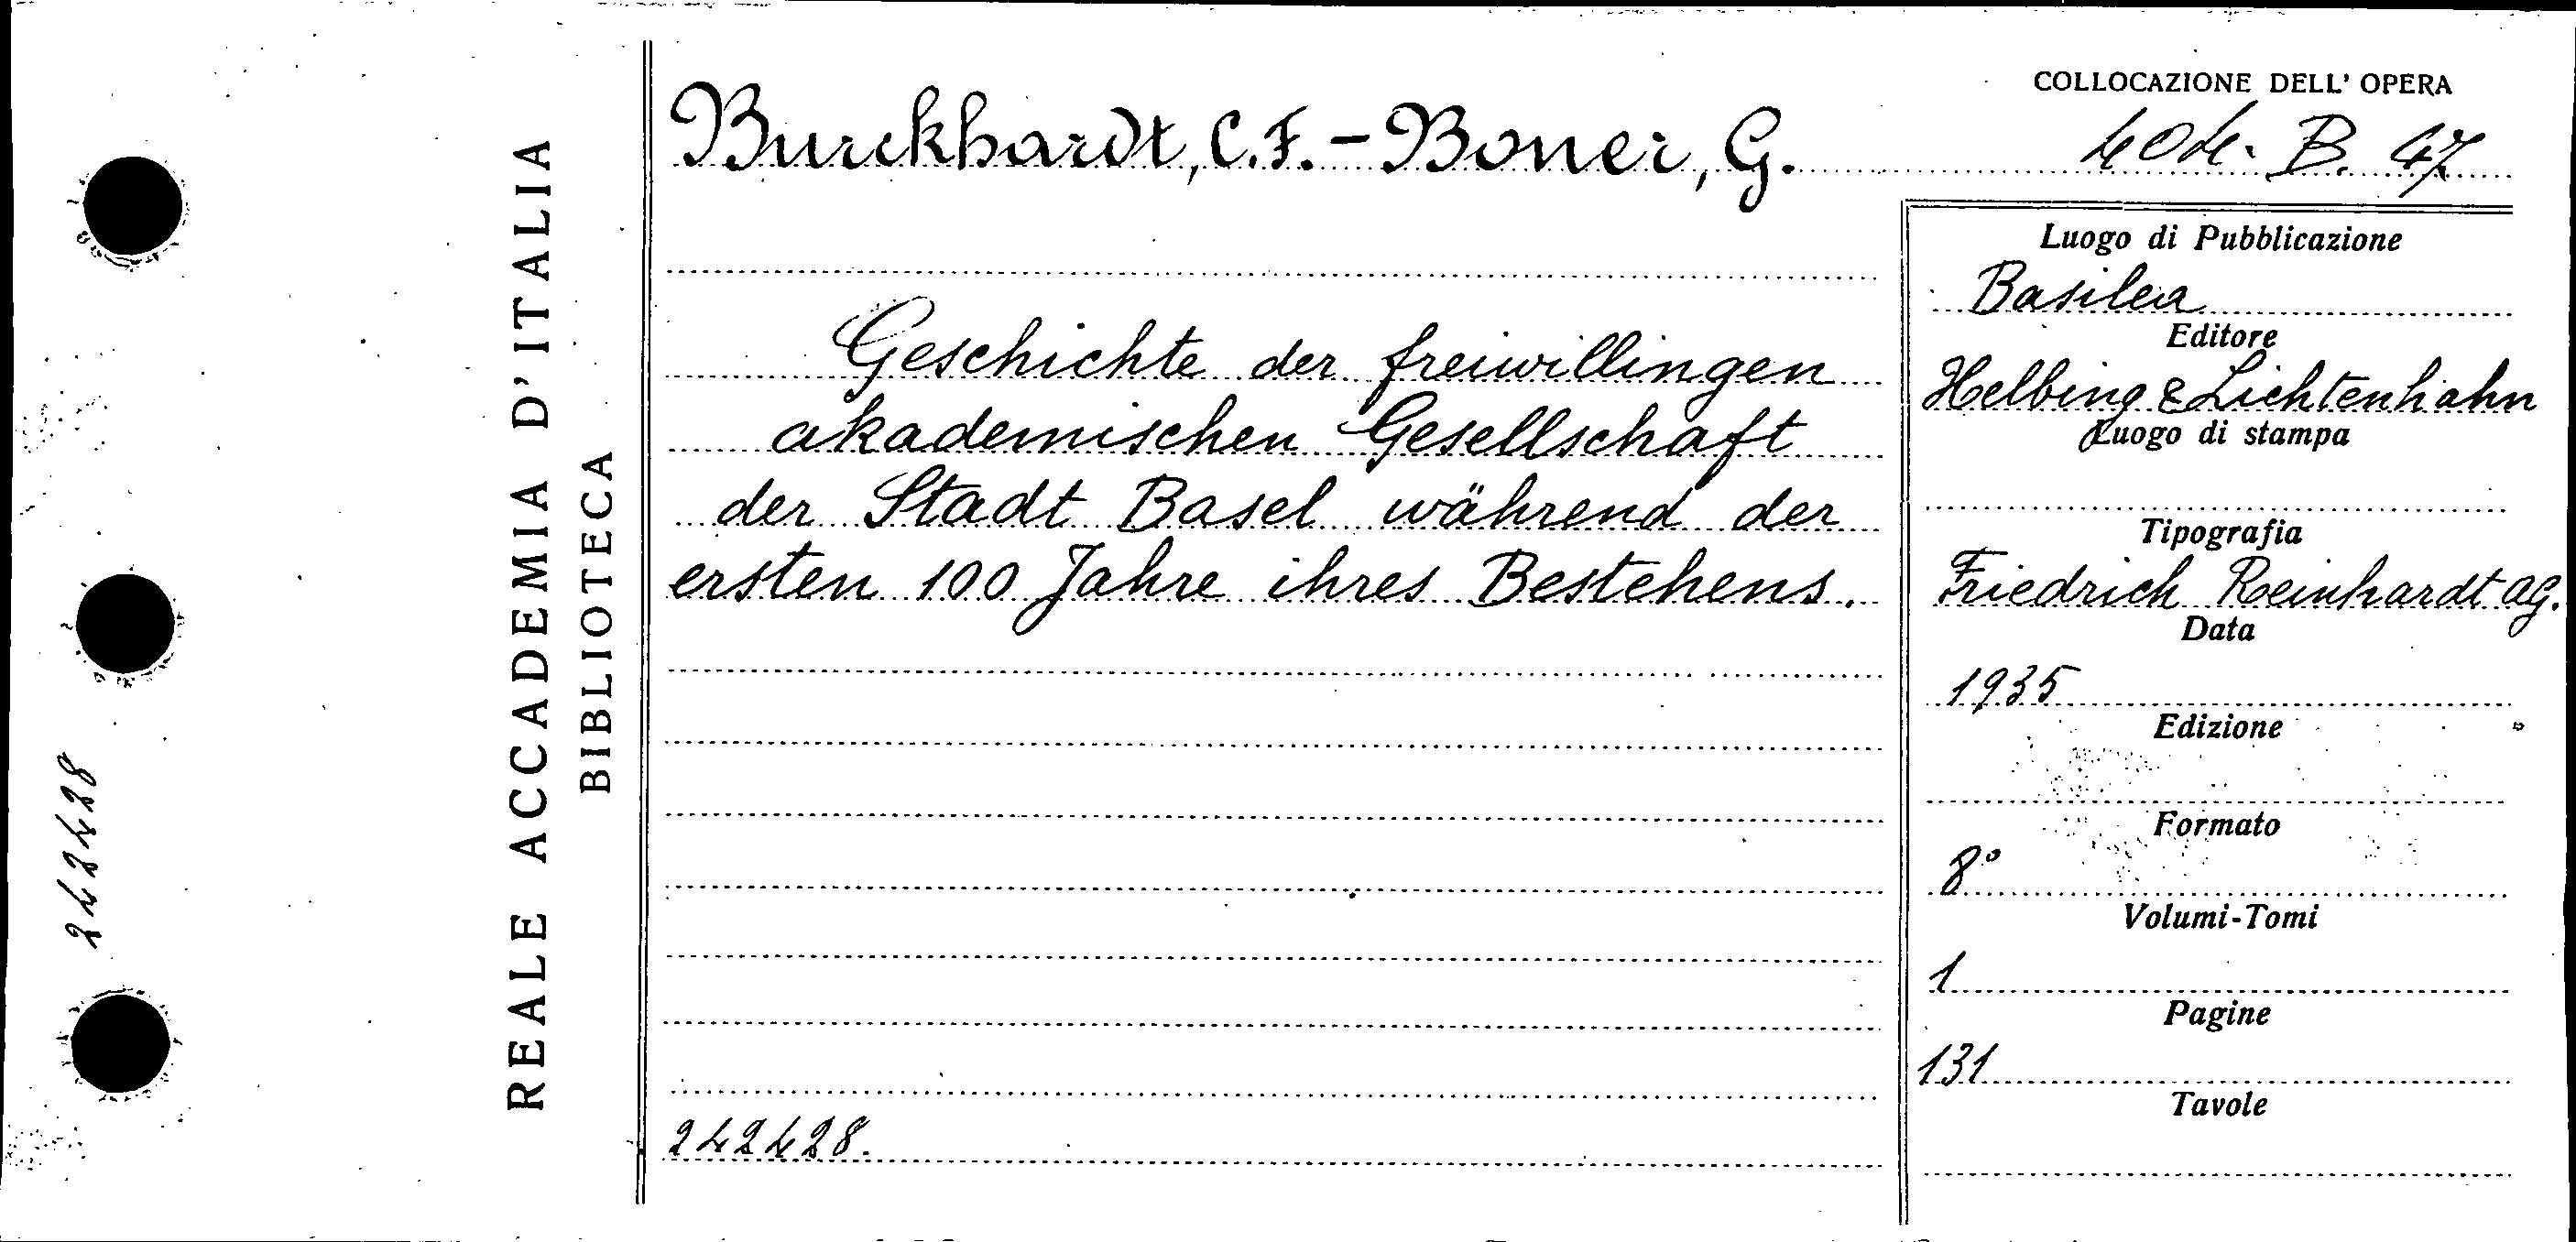 REALE ACCADEMIA D'ITALIA
BIBLIOTECA
242428
Burckhardt, C.F. - Boner, G.
Geschichte der freiwillingen
akademischen Gesellschaft
der Stadt Basel während der
ersten 100 Jahre ihres Bestehens.
242428.
COLLOCAZIONE DELL' OPERA
404. B. 47
Luogo di Pubblicazione
Basilea
Editore
Helbing & Lichtenhahn
Luogo di stampa
Tipografia
Friedrich Reinhardt AG.
Data
1935
Edizione
Formato
8°
Volumi-Tomi
1
Pagine
131
Tavole